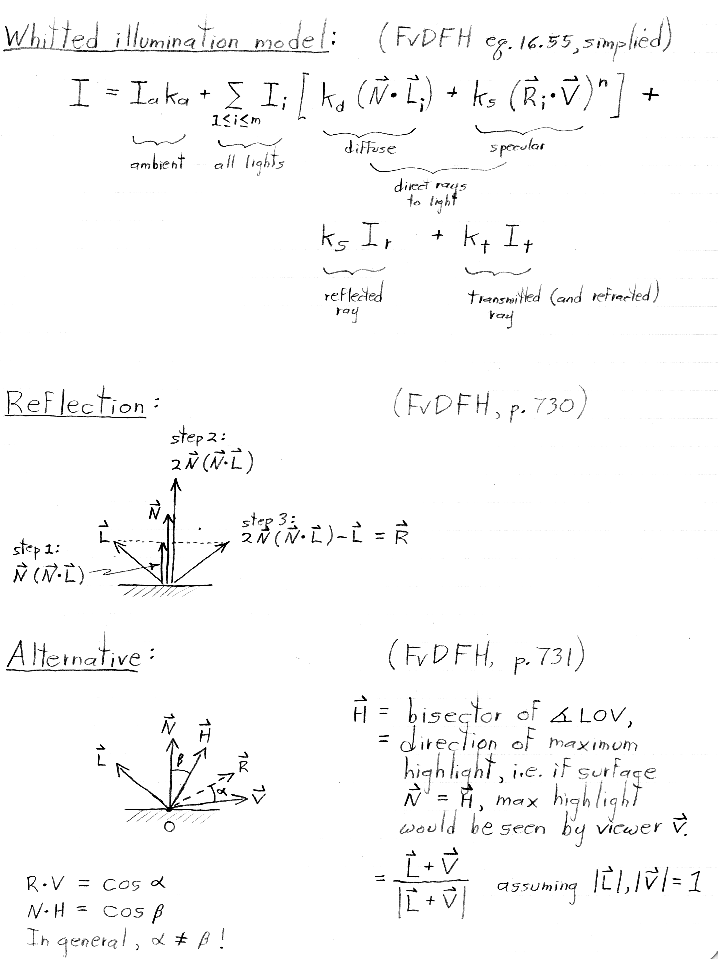 Whitted illumination model: (FvDFH eq. 16.55, simplied)
I = Iₐkₐ + Σ Iᵢ [ k_d (N⃗·L⃗ᵢ) + kₛ (R⃗ᵢ·V⃗)ⁿ ] +
1≤i≤m
ambient all lights diffuse specular
direct rays
to light
kₛ Iᵣ + kₜ Iₜ
reflected transmitted (and refracted)
ray ray
Reflection: (FvDFH, p. 730)
step 2:
2N⃗(N⃗·L⃗)
N⃗
L⃗
step 3:
2N⃗(N⃗·L⃗)-L⃗ = R⃗
step 1:
N⃗(N⃗·L⃗)
Alternative: (FvDFH, p. 731)
L⃗ N⃗ H⃗ R⃗ V⃗
β α
O
H⃗ = bisector of ∡ LOV,
= direction of maximum
highlight, i.e. if surface
N⃗ = H⃗, max highlight
would be seen by viewer V⃗.
= (L⃗ + V⃗) / |L⃗ + V⃗| assuming |L⃗|,|V⃗| = 1
R·V = cos α
N·H = cos β
In general, α ≠ β !